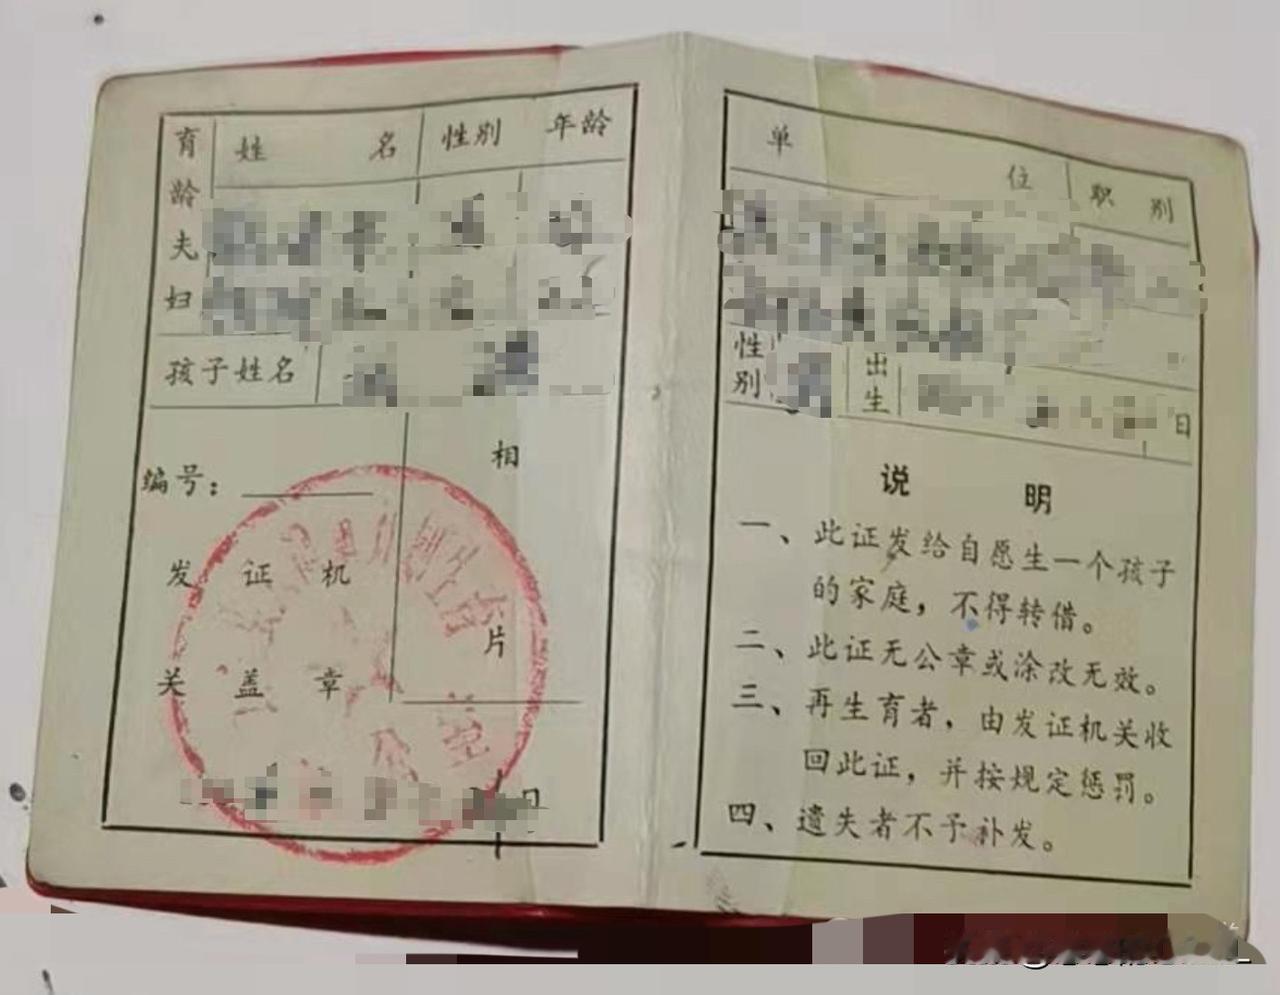 育龄夫妇
姓名 性别 年龄
孩子姓名
编号：
相片
发证机
关盖章
日
单位 职别
性别 出生 日
说明
一、此证发给自愿生一个孩子
的家庭，不得转借。
二、此证无公章或涂改无效。
三、再生育者，由发证机关收
回此证，并按规定惩罚。
四、遗失者不予补发。